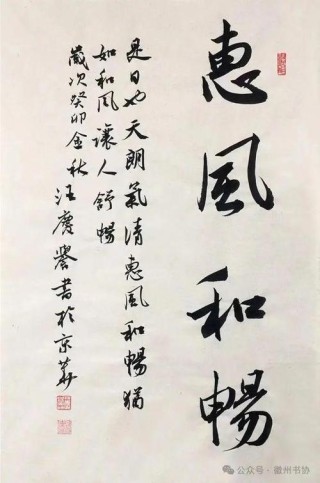 惠風和暢
是日也天朗氣清惠風和暢猶
如和風讓人舒暢
歲次癸卯金秋汪慶譽書於京華
公众号·徽州书协